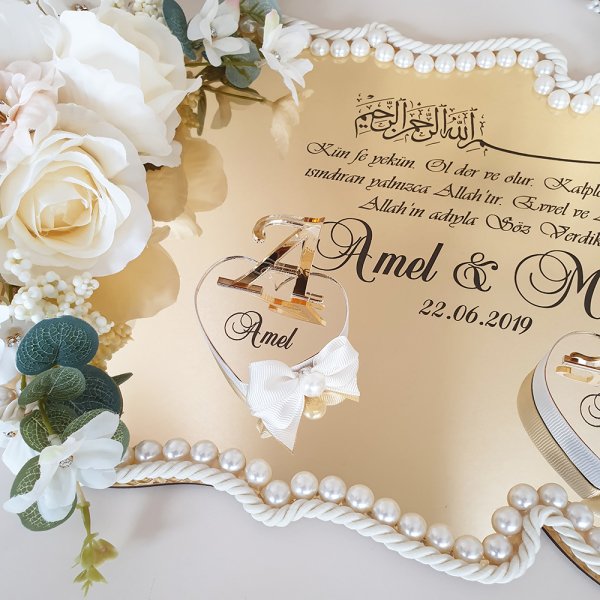 بسم الله الرحمن الرحيم
Kün fe yekün. Ol der ve olur. Kalple
ısındıran yalnızca Allah'tır. Evvel ve
Allah'ın adıyla Söz Verdik
Amel & M
22.06.2019
A
Amel